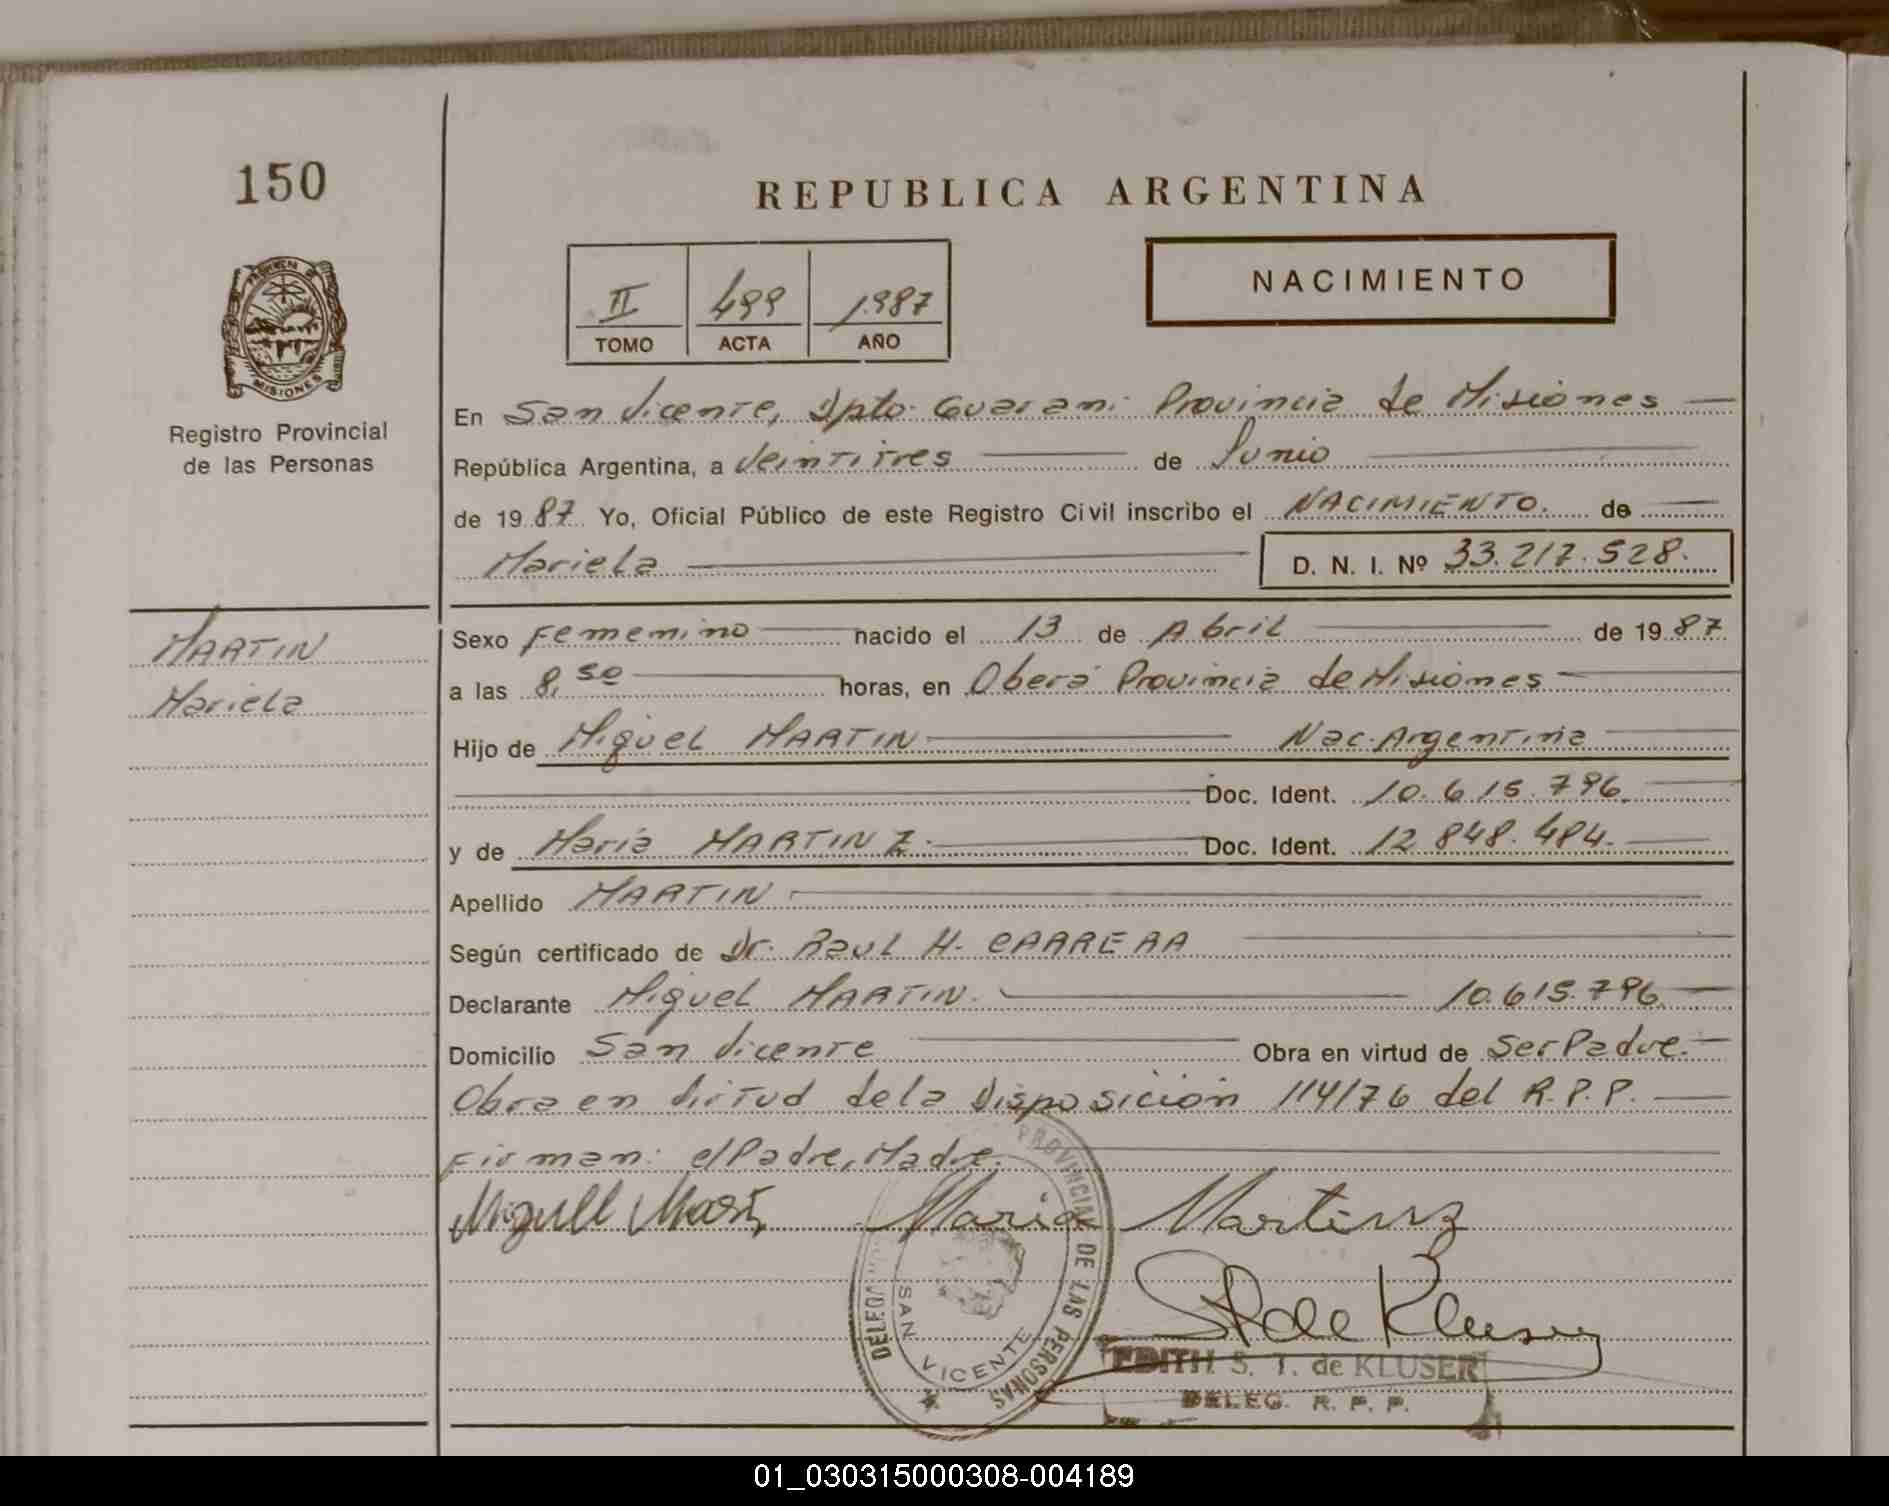 150
REPUBLICA ARGENTINA
II 499 1987
TOMO ACTA AÑO
NACIMIENTO
PROVINCIA DE
MISIONES
Registro Provincial
de las Personas
En San Vicente, Dpto. Guarani Provincia de Misiones
República Argentina, a Veintitres de Junio
de 1987 Yo, Oficial Público de este Registro Civil inscribo el NACIMIENTO. de
Mariela D. N. I. Nº 33.217.528.
MARTIN
Mariela
Sexo Femenino nacido el 13 de Abril de 1987
a las 8,50 horas, en Oberá Provincia de Misiones
Hijo de Miguel MARTIN Nac. Argentina
Doc. Ident. 10.615.796.
y de María MARTINZ. Doc. Ident. 12.848.484.
Apellido MARTIN
Según certificado de Dr. Raul H. CARRERA
Declarante Miguel MARTIN. 10.615.796
Domicilio San Vicente Obra en virtud de Ser Padre.
Obra en Virtud de la Disposición 114/76 del R.P.P.
Firman: el Padre, Madre.
Miguel Maria Martinz
PROVINCIAL DE LAS PERSONAS
SAN VICENTE
EDITH S. T. de KLUSER
DELEG. R. P. P.
01_030315000308-004189